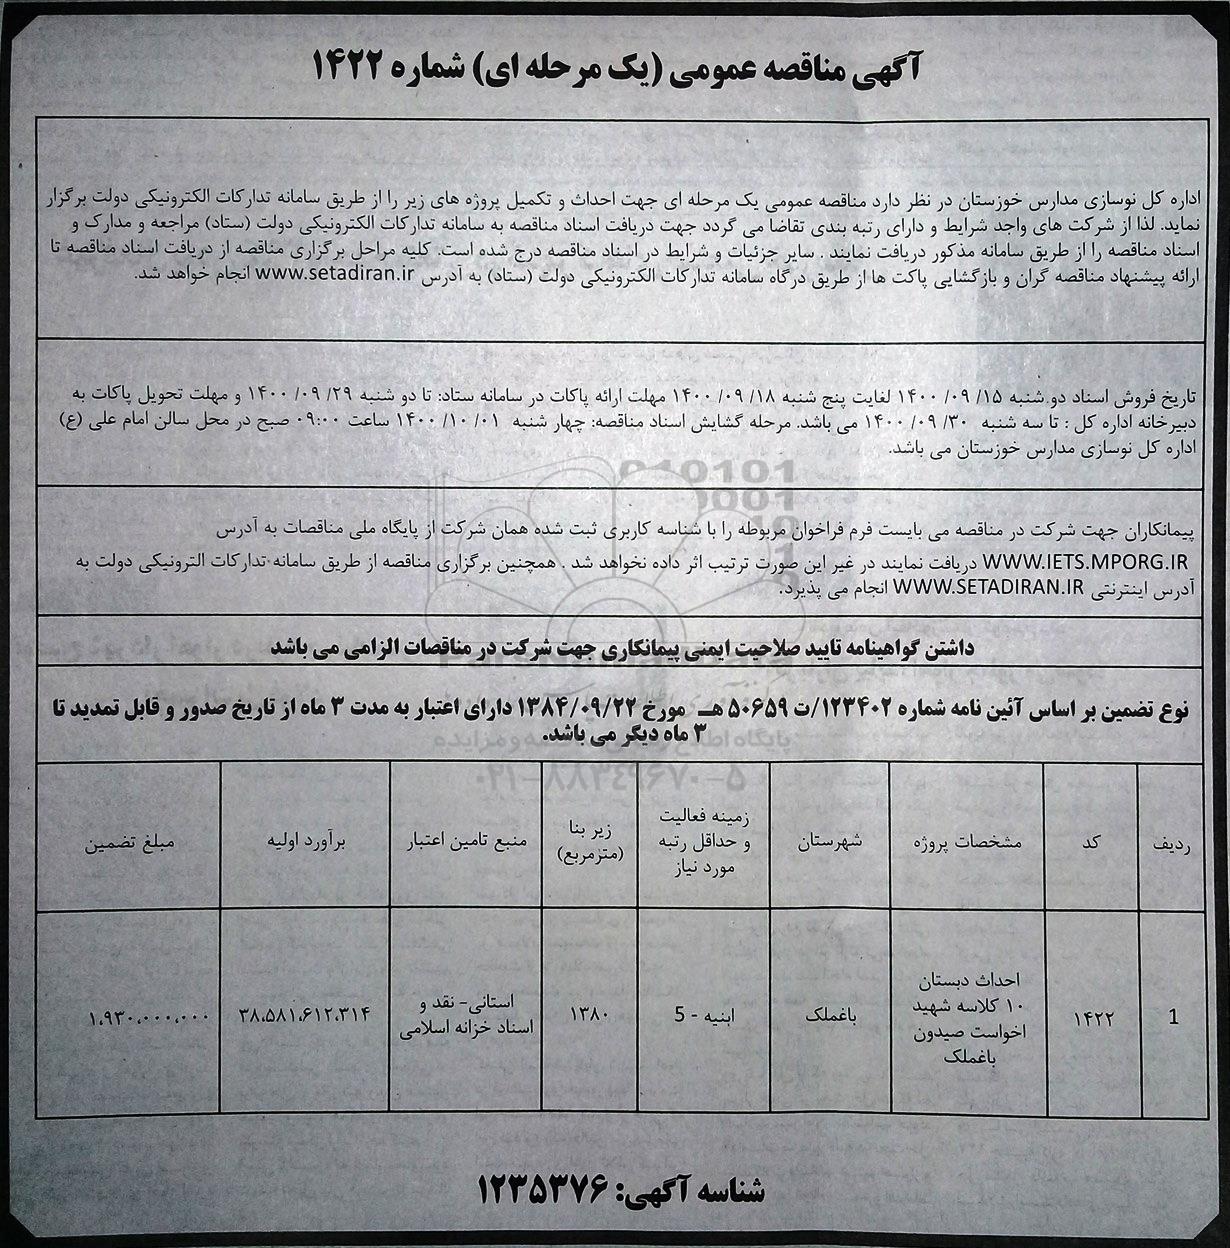 آگهی مناقصه عمومی (یک مرحله ای) شماره ۱۴۲۲
اداره کل نوسازی مدارس خوزستان در نظر دارد مناقصه عمومی یک مرحله ای جهت احداث و تکمیل پروژه های زیر را از طریق سامانه تدارکات الکترونیکی دولت برگزار
نماید. لذا از شرکت های واجد شرایط و دارای رتبه بندی تقاضا می گردد جهت دریافت اسناد مناقصه به سامانه تدارکات الکترونیکی دولت (ستاد) مراجعه و مدارک و
اسناد مناقصه را از طریق سامانه مذکور دریافت نمایند . سایر جزئیات و شرایط در اسناد مناقصه درج شده است. کلیه مراحل برگزاری مناقصه از دریافت اسناد مناقصه تا
ارائه پیشنهاد مناقصه گران و بازگشایی پاکت ها از طریق درگاه سامانه تدارکات الکترونیکی دولت (ستاد) به آدرس www.setadiran.ir انجام خواهد شد.
تاریخ فروش اسناد دو شنبه ۱۵/ ۰۹/ ۱۴۰۰ لغایت پنج شنبه ۱۸/ ۰۹/ ۱۴۰۰ مهلت ارائه پاکات در سامانه ستاد: تا دو شنبه ۲۹/ ۰۹/ ۱۴۰۰ و مهلت تحویل پاکات به
دبیرخانه اداره کل : تا سه شنبه ۳۰/ ۰۹/ ۱۴۰۰ می باشد. مرحله گشایش اسناد مناقصه: چهار شنبه ۰۱/ ۱۰/ ۱۴۰۰ ساعت ۰۹:۰۰ صبح در محل سالن امام علی (ع)
اداره کل نوسازی مدارس خوزستان می باشد.
پیمانکاران جهت شرکت در مناقصه می بایست فرم فراخوان مربوطه را با شناسه کاربری ثبت شده همان شرکت از پایگاه ملی مناقصات به آدرس
WWW.IETS.MPORG.IR دریافت نمایند در غیر این صورت ترتیب اثر داده نخواهد شد . همچنین برگزاری مناقصه از طریق سامانه تدارکات الترونیکی دولت به
آدرس اینترنتی WWW.SETADIRAN.IR انجام می پذیرد.
داشتن گواهینامه تایید صلاحیت ایمنی پیمانکاری جهت شرکت در مناقصات الزامی می باشد
نوع تضمین بر اساس آئین نامه شماره ۱۲۳۴۰۲/ت ۵۰۶۵۹ هـ مورخ ۱۳۸۴/۰۹/۲۲ دارای اعتبار به مدت ۳ ماه از تاریخ صدور و قابل تمدید تا
۳ ماه دیگر می باشد.
ردیف
کد
مشخصات پروژه
شهرستان
زمینه فعالیت
و حداقل رتبه
مورد نیاز
زیر بنا
(مترمربع)
منبع تامین اعتبار
برآورد اولیه
مبلغ تضمین
1
۱۴۲۲
احداث دبستان
۱۰ کلاسه شهید
اخواست صیدون
باغملک
باغملک
ابنیه - 5
۱۳۸۰
استانی- نقد و
اسناد خزانه اسلامی
۳۸،۵۸۱،۶۱۲،۳۱۴
۱،۹۳۰،۰۰۰،۰۰۰
شناسه آگهی: ۱۲۳۵۳۷۶
۰۲۱-۸۸۳۴۹۶۷۰-۵